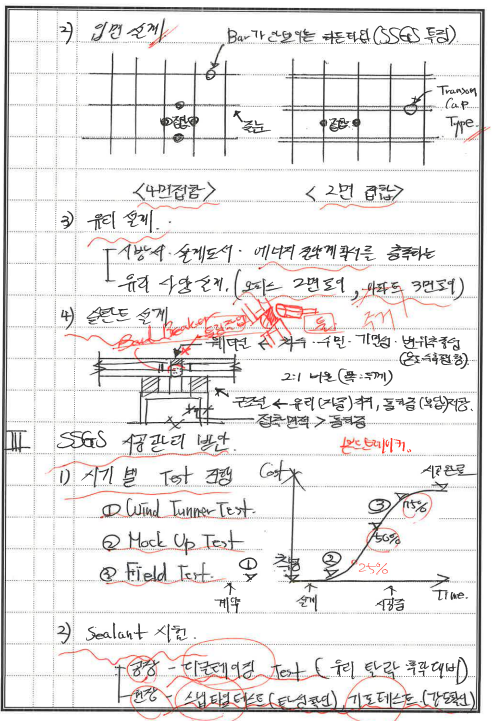 2) 입면 설계
Bar가 안보이는 히든타입 (SSGS 특징)
접합
줄눈
접합
Transom Cap Type.
<4면접합>
<2면 접합>
3) 유리 설계.
시방서·설계도서·에너지 절약계획서를 충족하는
유리 사양 설계. (오피스 2면로이, 아파트 3면로이)
4) 실란트 설계
Bond Breaker
웨더실 ← 치수·수밀·기밀성·변위추종성
2:1 비율 (폭:두께)
구조용 ← 유리(자중)하중, 풍하중(부압)저항.
접착면적 > 풍하중
Ⅲ SSGS 시공관리 방안.
본드브레이커.
1) 시기별 Test 진행
① Wind Tunner Test.
② Mock Up Test
③ Field Test.
Cost
시공완료
① ② ③
75%
50%
25%
계약
설계
시공중
Time.
2) Sealant 시험.
공장 - 디글레이징 Test (유리 탈락 후 확대비)
현장 - 스냅 타임테스트 (탄성확인), 기포테스트 (강도확인)